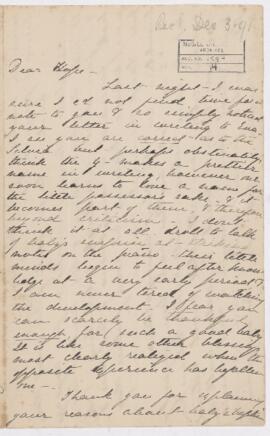 Rec'd. Dec 3. 91
Dear Hope -
Last night I was
sure I cd not find time for a
note to you & so simply noticed
your letter in writing to Eva.
I see you are correct as to the
but perhaps obstinately
think the y makes a prettier
name in writing, however one
soon learns to love a name for
the little possessor's sake, & it
becomes part of them, & therefore
beyond criticism. I don't
think it at all droll to talk
of baby's surprise at striking
notes on the piano. Their little
minds begin to feel after know-
ledge at a very early period &
I am never tired of watching
the development. I fear you
can scarcely be thankful
enough for such a good baby
It is like some other blessings
most clearly realized when the
opposite experience has befallen
one -
Thank you for explaining
your reasons about baby's